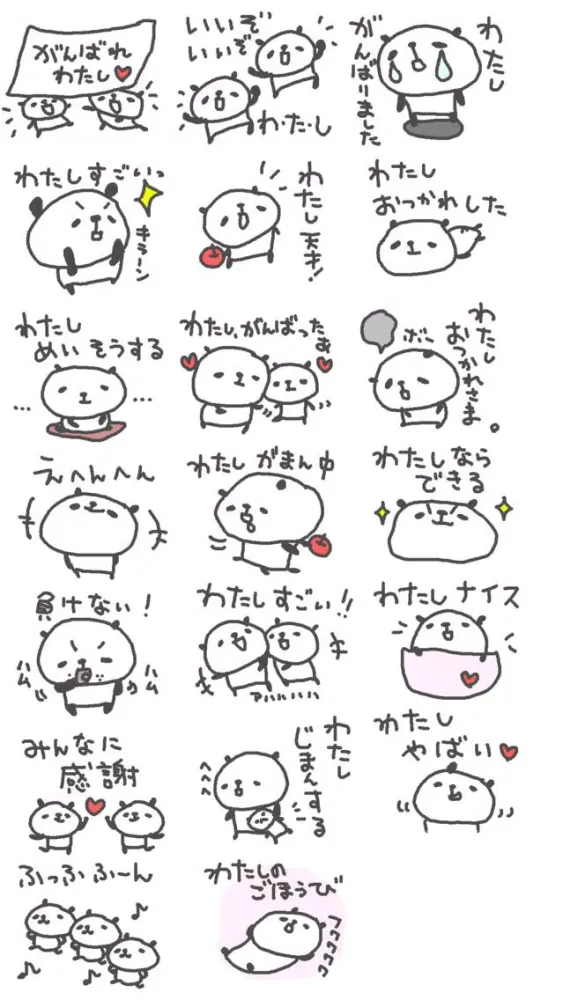 がんばれ
わたし♥
いいぞ
いいぞ
わ・た・し
わたし
がんばりました
わたしすごいっ
キラーン
わたし
天才!
わたし
おつかれした
わたし
めいそうする
...
...
わたし、がんばった
ぁ
わたし
おつかれさま。
ボー
えへんへん
わたし がまん中
わたしなら
できる
負けない!
ハム
ハム
わたしすごい!!
アハハハハ
わたしナイス
みんなに
感謝
わたし
じまんする
わたし
やばい♥
ふっふふーん
わたしの
ごほうび
ゴゴゴゴゴ